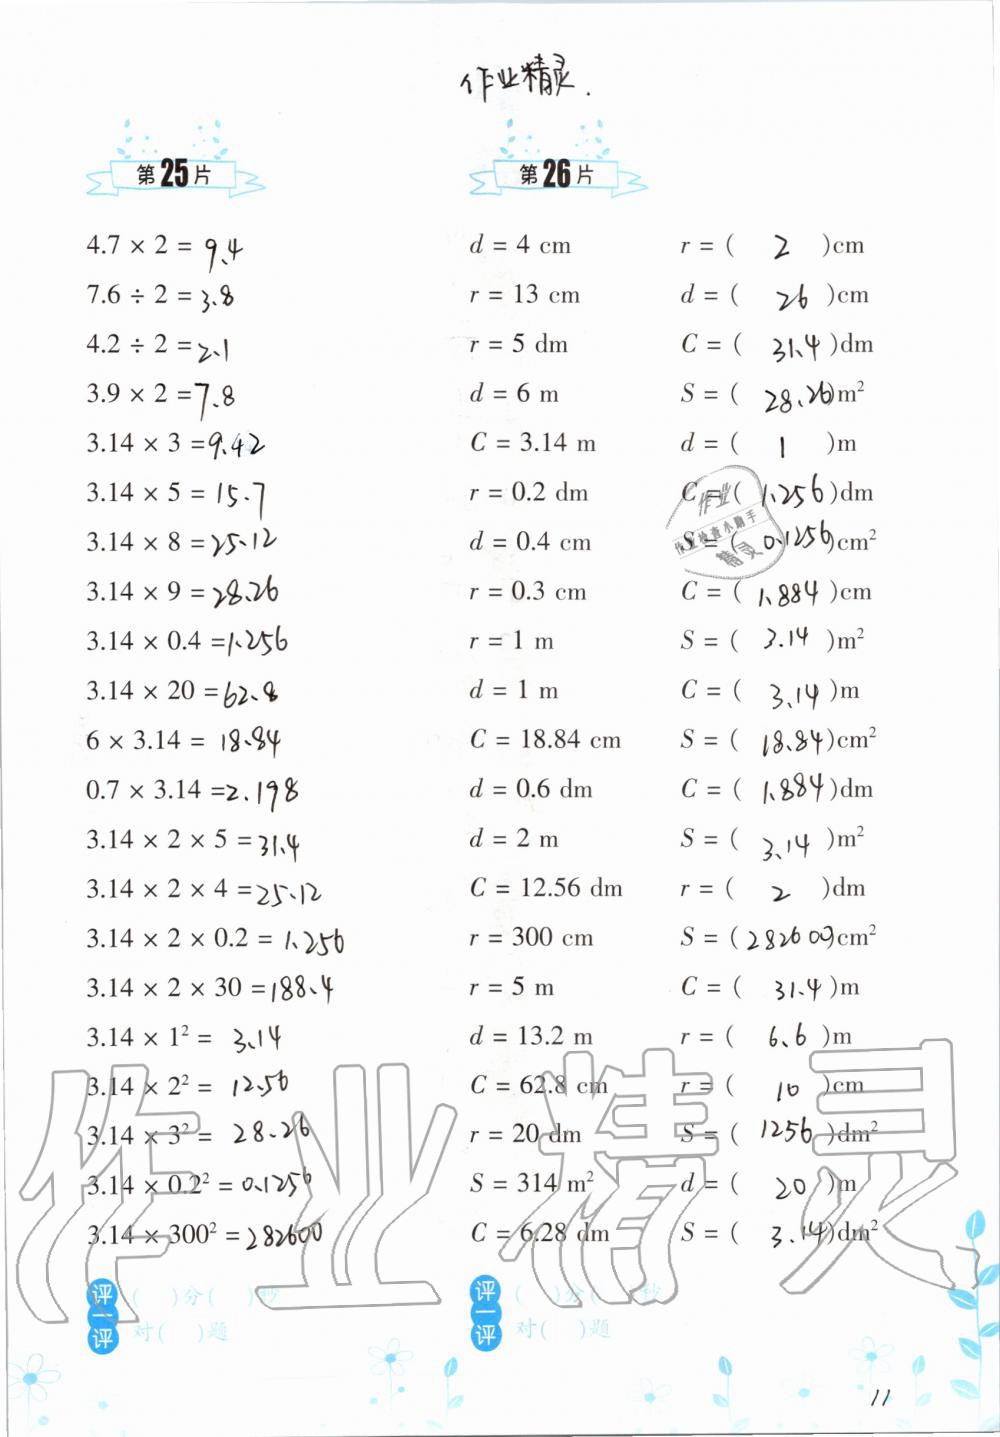 作业精灵.
第25片
4.7 × 2 = 9.4
7.6 ÷ 2 = 3.8
4.2 ÷ 2 = 2.1
3.9 × 2 = 7.8
3.14 × 3 = 9.42
3.14 × 5 = 15.7
3.14 × 8 = 25.12
3.14 × 9 = 28.26
3.14 × 0.4 = 1.256
3.14 × 20 = 62.8
6 × 3.14 = 18.84
0.7 × 3.14 = 2.198
3.14 × 2 × 5 = 31.4
3.14 × 2 × 4 = 25.12
3.14 × 2 × 0.2 = 1.256
3.14 × 2 × 30 = 188.4
3.14 × 1² = 3.14
3.14 × 2² = 12.56
3.14 × 3² = 28.26
3.14 × 0.2² = 0.1256
3.14 × 300² = 282600
评一评
( )分( )秒
对( )题
第26片
d = 4 cm r = ( 2 )cm
r = 13 cm d = ( 26 )cm
r = 5 dm C = ( 31.4 )dm
d = 6 m S = ( 28.26 )m²
C = 3.14 m d = ( 1 )m
r = 0.2 dm C = ( 1.256 )dm
d = 0.4 cm S = ( 0.1256 )cm²
r = 0.3 cm C = ( 1.884 )cm
r = 1 m S = ( 3.14 )m²
d = 1 m C = ( 3.14 )m
C = 18.84 cm S = ( 18.84 )cm²
d = 0.6 dm C = ( 1.884 )dm
d = 2 m S = ( 3.14 )m²
C = 12.56 dm r = ( 2 )dm
r = 300 cm S = ( 282600 )cm²
r = 5 m C = ( 31.4 )m
d = 13.2 m r = ( 6.6 )m
C = 62.8 cm r = ( 10 )cm
r = 20 dm S = ( 1256 )dm²
S = 314 m² d = ( 20 )m
C = 6.28 dm S = ( 3.14 )dm²
评一评
( )分( )秒
对( )题
作业
作业检查小助手
精灵
作业精灵
11